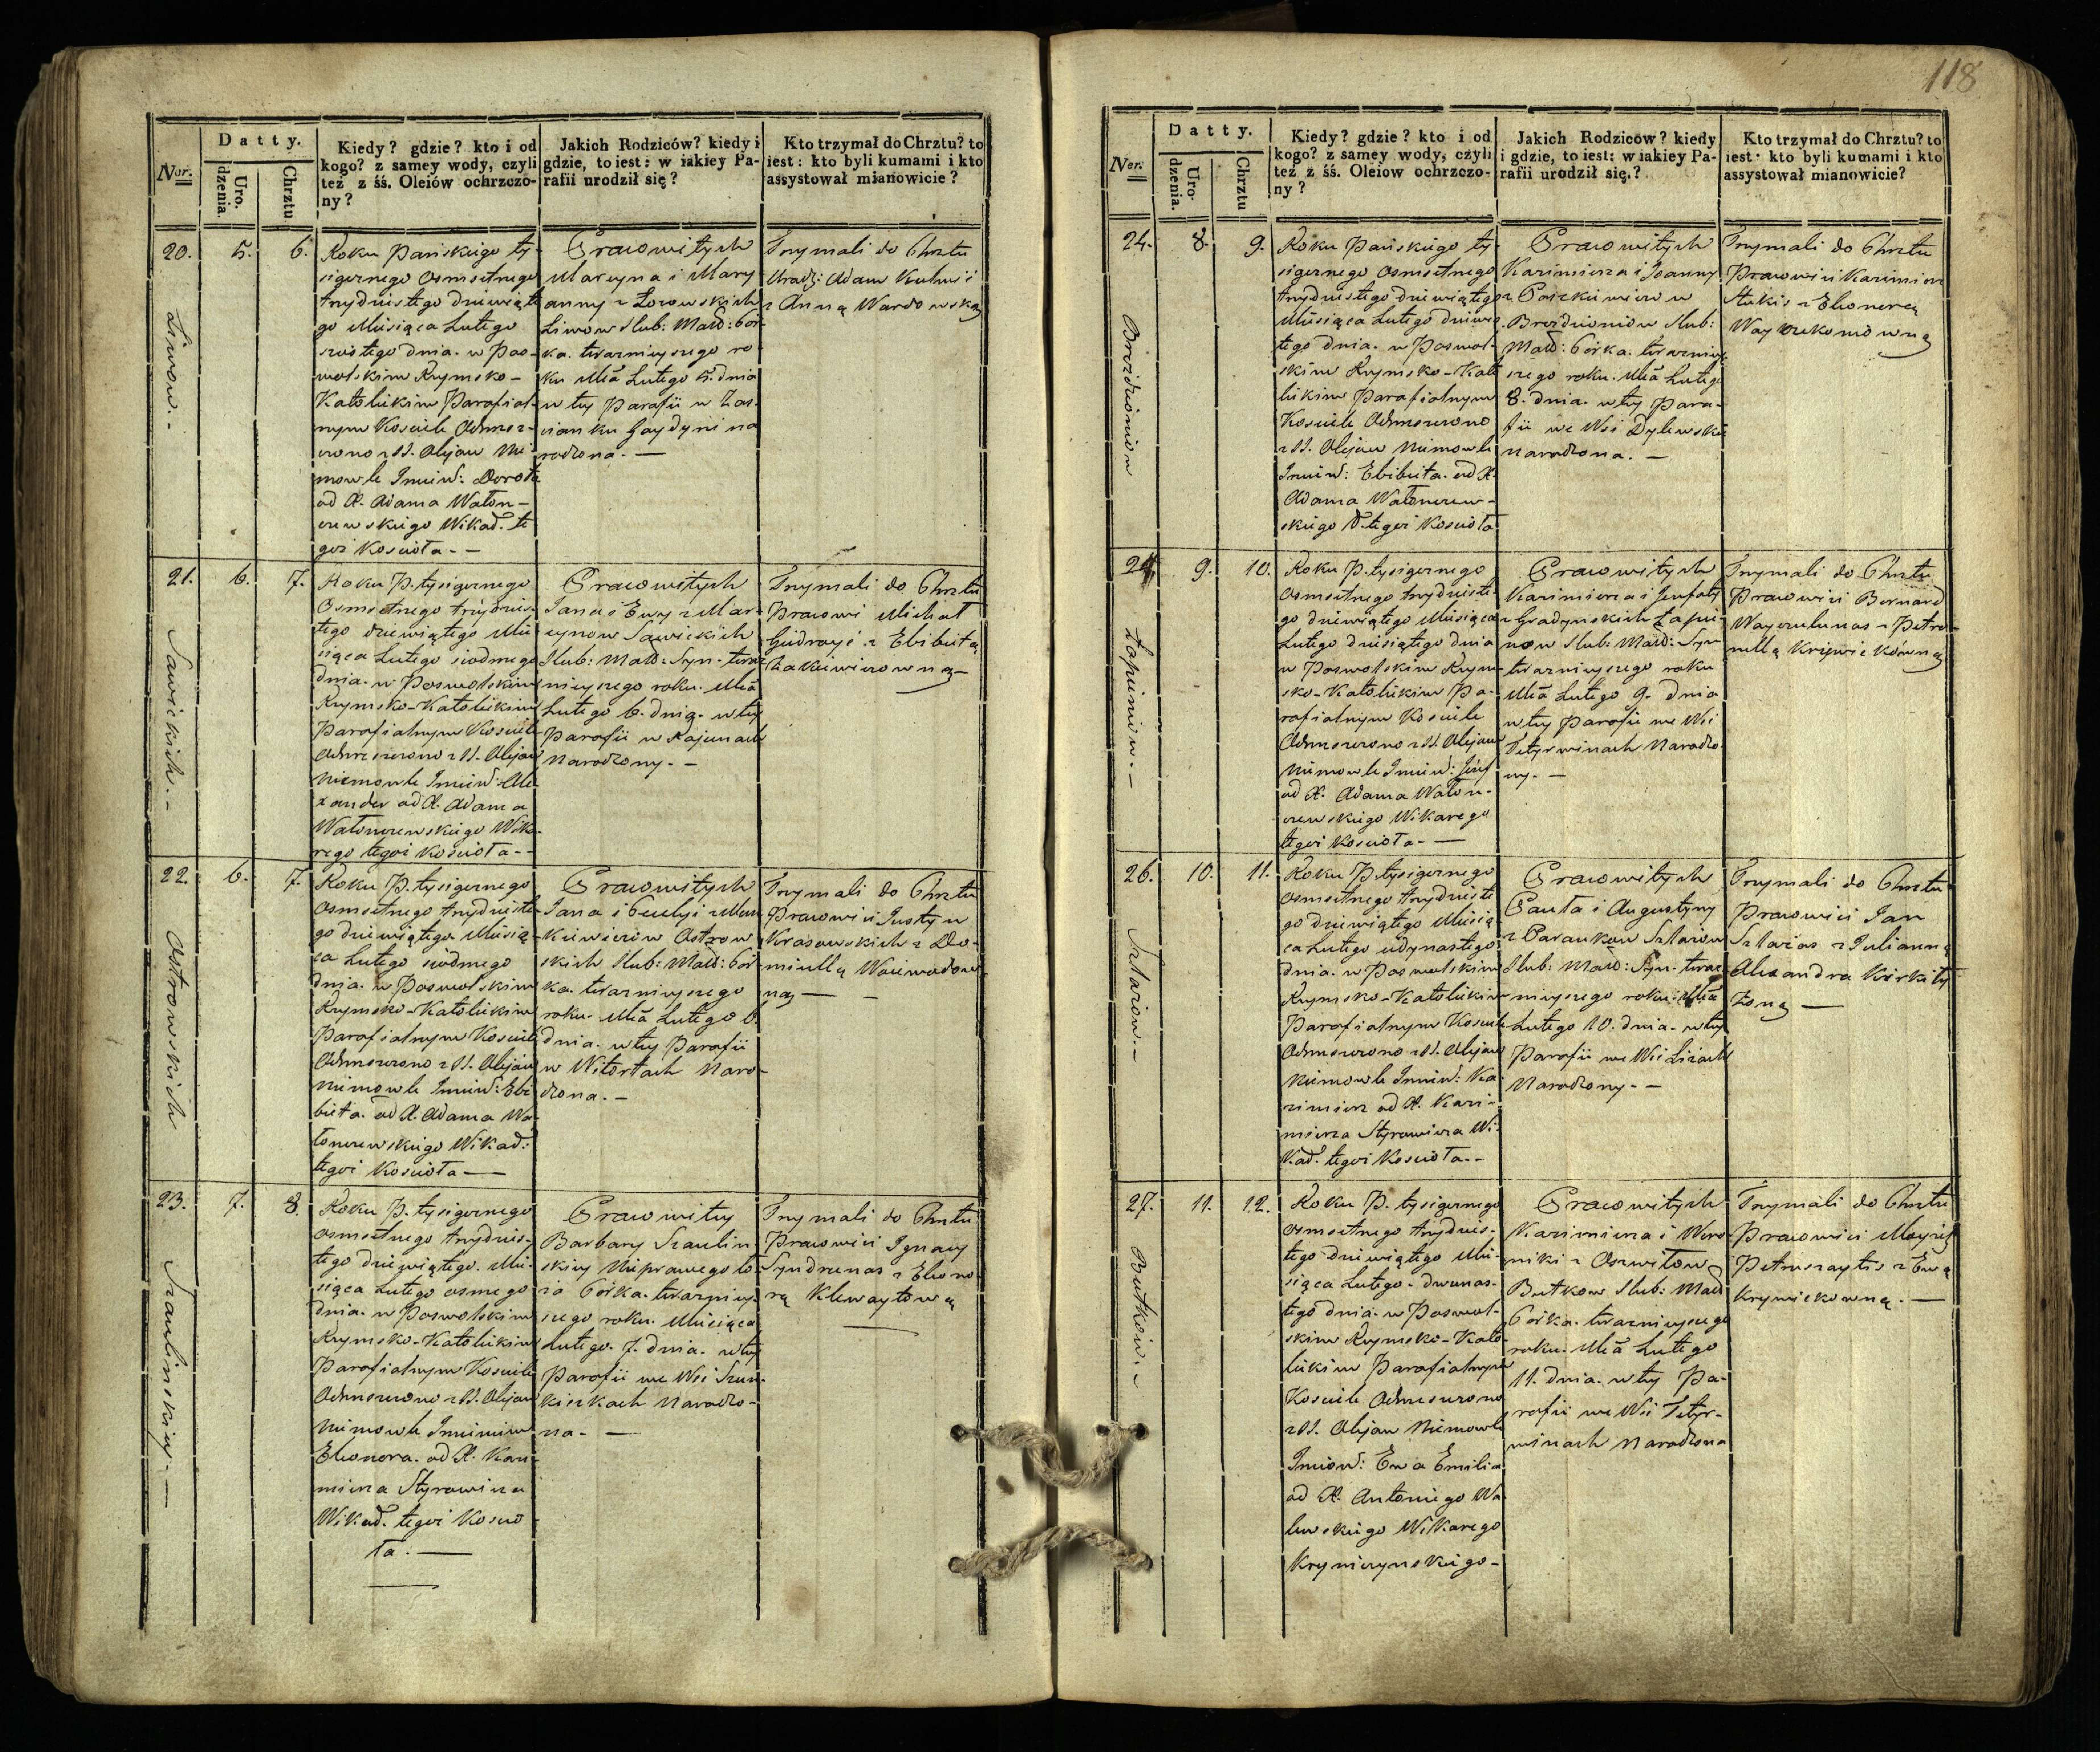 Datty.
Nor.
Uro.
dzenia.
Chrztu
Kiedy? gdzie? kto i od
kogo? z samey wody, czyli
też z śś. Oleiów ochrzczo-
ny?
Jakich Rodziców? kiedy i
gdzie, to iest: w iakiey Pa-
rafii urodził się?
Kto trzymał do Chrztu? to
iest: kto byli kumami i kto
assystował mianowicie?
20.
Liwow.-
5.
6.
Roku Pańskiego ty-
siącznego Osmsetnego
trzydziestego dziewiąte
go Miesiąca Lutego
szóstego dnia. w Pos-
wolskim Rzymsko-
Katolickim Parafial-
nym Kosciele Ochrz-
czono z SS. Olejów Nie
mowle Imiew: Dorota
od X. Adama Waton-
czewskiego Wikad. te
goż Koscioła.-
Prawowitych
Marcyna i Mary
anny z Łozowskich
Liwow Slub: Małż: Cór-
ka. teraznieyszego ro-
ku Mca Lutego 5. dnia
w tey Parafii w Zas-
cianku Gaydyni na
rodzona.-
Trzymali do Chrztu
Urodz: Adam
z Anną Wardowską
21.
Sawickich.-
6.
7.
Roku P. tysiącznego
Osmsetnego trzydzies-
tego dziewiątego Mie
siąca Lutego siodmego
dnia. w Poswolskim
Rzymsko-Katolickim
Parafialnym Kosciele
Ochrzczono z SS. Olejów
Niemowle Imiew: Ale-
xander od X. Adama
Watonczewskiego Wika-
rego tegoż Koscioła.-
Prawowitych
Jana i Ewy z Mar-
cynow Sawickich
Slub: Małż: Syn. teraz
nieyszego roku. Mca
Lutego 6. dnia. w tey
Parafii w Kajunach
Narodzony.-
Trzymali do Chrztu
Prawowi Michał
Giedroyć z Elżbietą
Zakiewiczowną-
22.
Ostrowskich
6.
7.
Roku P. tysiącznego
Osmsetnego trzydzieste
go dziewiątego Miesią
ca Lutego siodmego
dnia. w Poswolskim
Rzymsko-Katolickim
Parafialnym Kosciele
Ochrzczono z SS. Olejów
Niemowle Imiew: Elż-
bieta. od X. Adama Wa-
tonczewskiego Wikad:
tegoż Koscioła-
Prawowitych
Jana i Cecylyi z Mun
kiewiczów Ostrow
skich Slub: Małż: Cór
ka. teraznieyszego
roku. Mca Lutego 6.
dnia. w tey Parafii
w Witortach Naro-
dzona.-
Trzymali do Chrztu
Prawowici Justyn
Krasowskich z Do-
micellą Woiewodow
ną-
23.
Szaulinskiey.-
7.
8.
Roku P. tysiącznego
Osmsetnego trzydzies-
tego dziewiątego. Mie-
siąca Lutego osmego
dnia. w Poswolskim
Rzymsko-Katolickim
Parafialnym Kosciele
Ochrzczono z SS. Olejów
Niemowle Imieniem
Eleonora. od X. Kazi-
mierza Styrowicza
Wikad. tegoż Koscio-
ła.-
Prawowitey
Barbary Szaulin
skiey Nieprawego ło-
ża Córka. terazniey
szego roku. Miesiąca
Lutego. 7. dnia. w tey
Parafii we Wsi Szun-
kiszkach Narodzo-
na.-
Trzymali do Chrztu
Prawowici Ignacy
Syndrenas z Eleono
rą Klewaytową
118
Datty.
Nor.
Uro-
dzenia.
Chrztu
Kiedy? gdzie? kto i od
kogo? z samey wody, czyli
też z śś. Oleiow ochrzczo-
ny?
Jakich Rodziców? kiedy
i gdzie, to iest: w iakiey Pa-
rafii urodził się.?
Kto trzymał do Chrztu? to
iest: kto byli kumami i kto
assystował mianowicie?
24.
Broidzioniow
8.
9.
Roku Pańskiego ty-
siącznego Osmsetnego
trzydziestego dziewiątego
Miesiąca Lutego dziewią
tego dnia. w Poswol-
skim Rzymsko-Kato
lickim Parafialnym
Kosciele Ochrzczono
z SS. Olejów Niemowle
Imiew: Elżbieta. od X.
Adama Watonczew-
skiego W. tegoż Koscioła
Prawowitych
Kazimierza i Joanny
z Paszkiewiczow
Broidzioniów Slub:
Małż: Córka. terazniey
szego roku. Mca Lutego
8. dnia. w tey Para-
fii we Wsi Dylewskie
Narodzona.-
Trzymali do Chrztu
Prawowici Kazimierz
Stukis z Eleonorą
Wayczekoniówną
25.
Łapieniow.-
9.
10.
Roku P. tysiącznego
Osmsetnego trzydzieste-
go dziewiątego Miesiąca
Lutego dziesiątego dnia
w Poswolskim Rzym-
sko-Katolickim Pa-
rafialnym Kosciele
Ochrzczono z SS. Olejów
Niemowle Imiew: Józef
od X. Adama Waton-
czewskiego Wikarego
tegoż Koscioła.-
Prawowitych
Kazimierza i Jozefaty
z Gradzynskich Łapie-
now Slub: Małż: Syn
teraznieyszego roku
Mca Lutego 9. dnia
w tey Parafii we Wsi
Tetyrwinach Narodzo
ny.-
Trzymali do Chrztu
Prawowici Bernard
Wayczulunas z Petro-
nellą Krzywickowną
26.
Szlaiow.-
10.
11.
Roku P. tysiącznego
Osmsetnego trzydzieste
go dziewiątego Miesią
ca Lutego iedynastego
dnia. w Poswolskim
Rzymsko-Katolickim
Parafialnym Kosciele
Ochrzczono z SS. Olejów
Niemowle Imiew: Ka
zimierz od X. Kazi-
mierza Styrowicza Wi-
kad. tegoż Koscioła.-
Prawowitych
Pawła i Augustyny
z Paraukow Szlaiow
Slub: Małż: Syn. teraz-
nieyszego roku. Mca
Lutego 10. dnia. w tey
Parafii we Wsi Liciach
Narodzony.-
Trzymali do Chrztu
Prawowici Jan
Szlaias z Julianną
Alexandra Kirkity
Żoną-
27.
Butków.-
11.
12.
Roku P. tysiącznego
Osmsetnego trzydzies-
tego dziewiątego Mie-
siąca Lutego. dwunas-
tego dnia. w Poswol-
skim Rzymsko-Kato-
lickim Parafialnym
Kosciele Ochrzczono
z SS. Olejów Niemowle
Imiew: Ewa Emilia
od X. Antoniego Wa-
lewskiego Wikarego
Krynicynskiego-
Prawowitych
Kazimierza i Wero
niki z Oszwitow
Butkow Slub: Małż
Córka. teraznieyszego
roku. Mca Lutego
11. dnia. w tey Pa-
rafii we Wsi Tetyr-
winach Narodzona
Trzymali do Chrztu
Prawowici Mayiey
Petruszaytis z Ewą
Krzywickowną.-